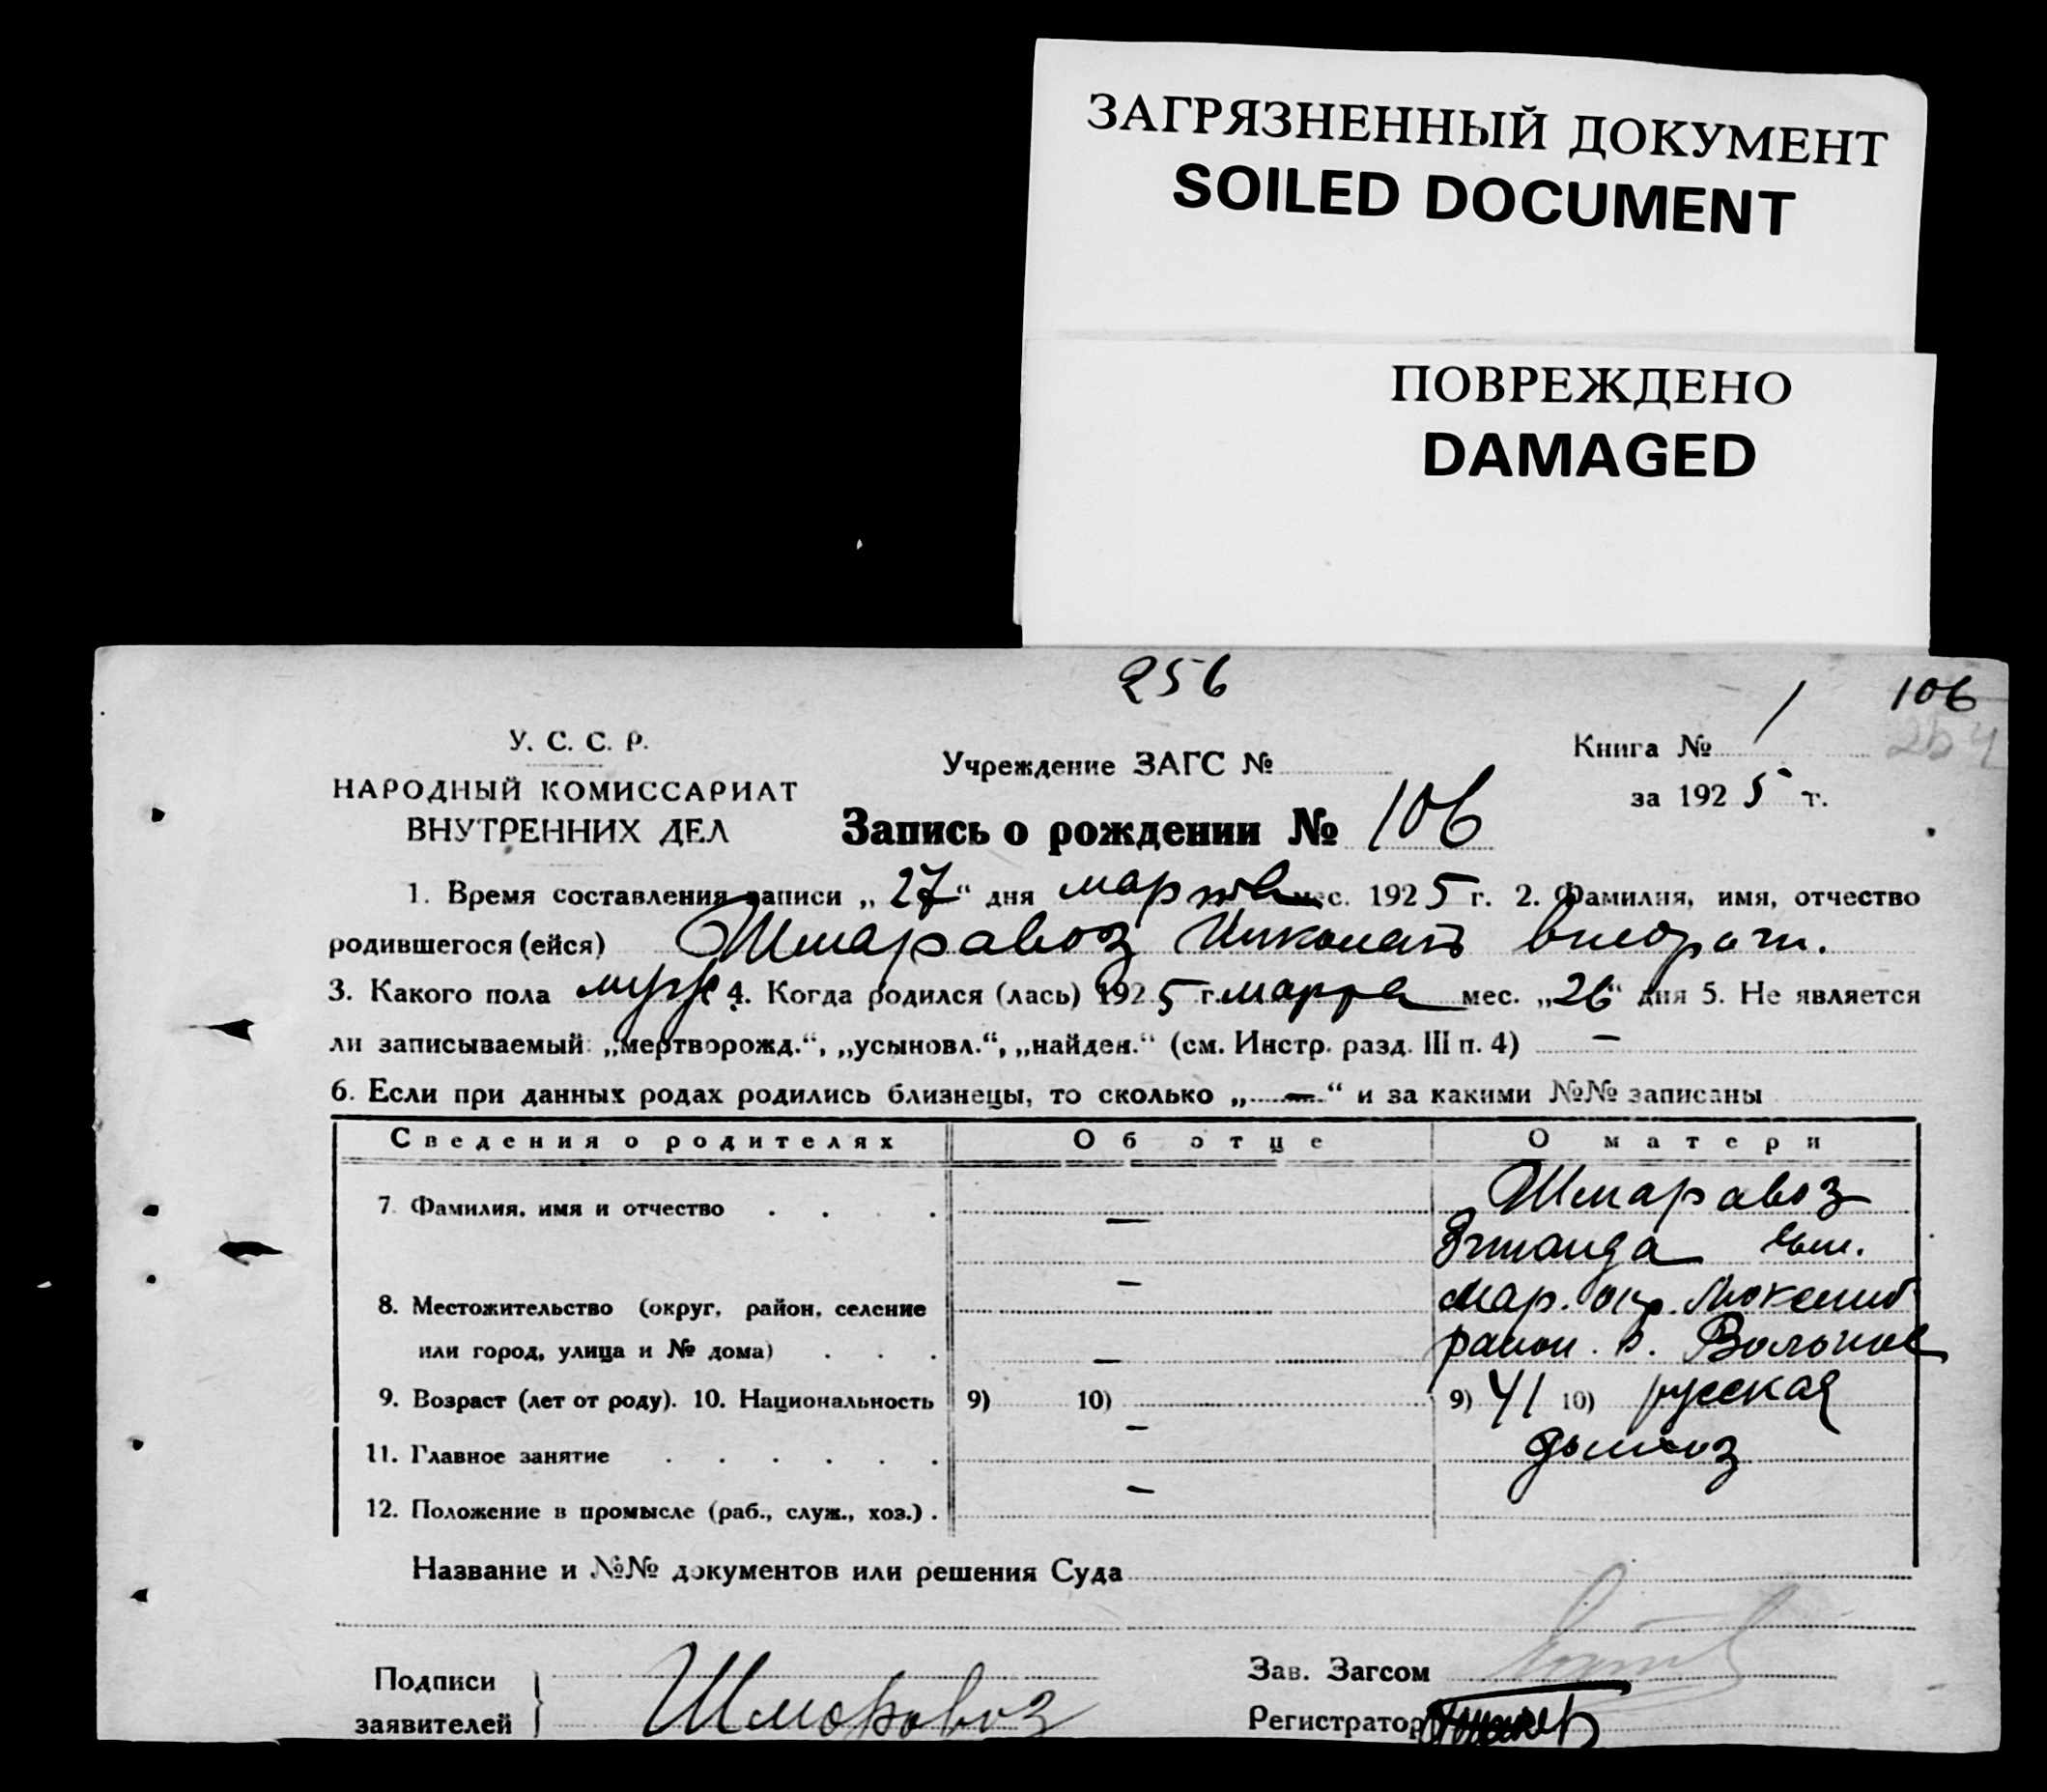 ЗАГРЯЗНЕННЫЙ ДОКУМЕНТ
SOILED DOCUMENT
ПОВРЕЖДЕНО
DAMAGED
256
106
У. С. С. Р.
НАРОДНЫЙ КОМИССАРИАТ
ВНУТРЕННИХ ДЕЛ
Учреждение ЗАГС №
Книга № 1
за 1925 г.
Запись о рождении № 106
1. Время составления записи „27“ дня марта мес. 1925 г. 2. Фамилия, имя, отчество
родившегося (ейся) Шмаравоз Николай
3. Какого пола муж 4. Когда родился (лась) 1925 г. марта мес. „26“ дня 5. Не является
ли записываемый: „мертворожд.“, „усыновл.“, „найден.“ (см. Инстр. разд. III п. 4) —
6. Если при данных родах родились близнецы, то сколько „—“ и за какими №№ записаны
Сведения о родителях Об отце О матери
7. Фамилия, имя и отчество . . . . — Шмаравоз
—
8. Местожительство (округ, район, селение Мар. окр.
или город, улица и № дома) . . . — район. с.
9. Возраст (лет от роду). 10. Национальность 9) 10) — 9) 41 10) русская
11. Главное занятие . . . . . . —
12. Положение в промысле (раб., служ., хоз.) .
Название и №№ документов или решения Суда
Подписи
заявителей } Шмаровоз
Зав. Загсом
Регистратор